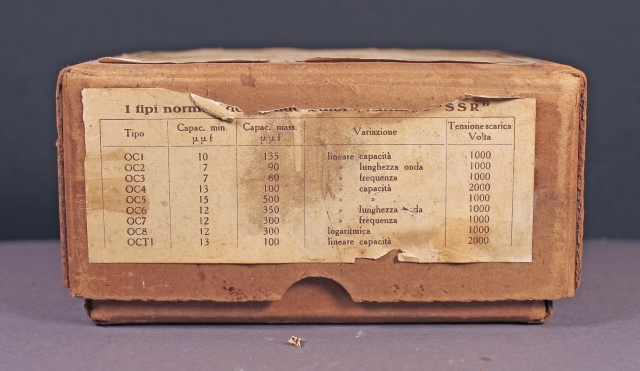 I tipi norm "SSR"
Tipo Capac. min. µµf Capac. mass. µµf Variazione Tensione scarica Volta
OC1 10 135 lineare capacità 1000
OC2 7 90 » lunghezza onda 1000
OC3 7 80 » frequenza 1000
OC4 13 100 » capacità 2000
OC5 15 500 » » 1000
OC6 12 350 » lunghezza 1000
OC7 12 300 » frequenza 1000
OC8 12 300 logaritmica 1000
OCT1 13 100 lineare capacità 2000